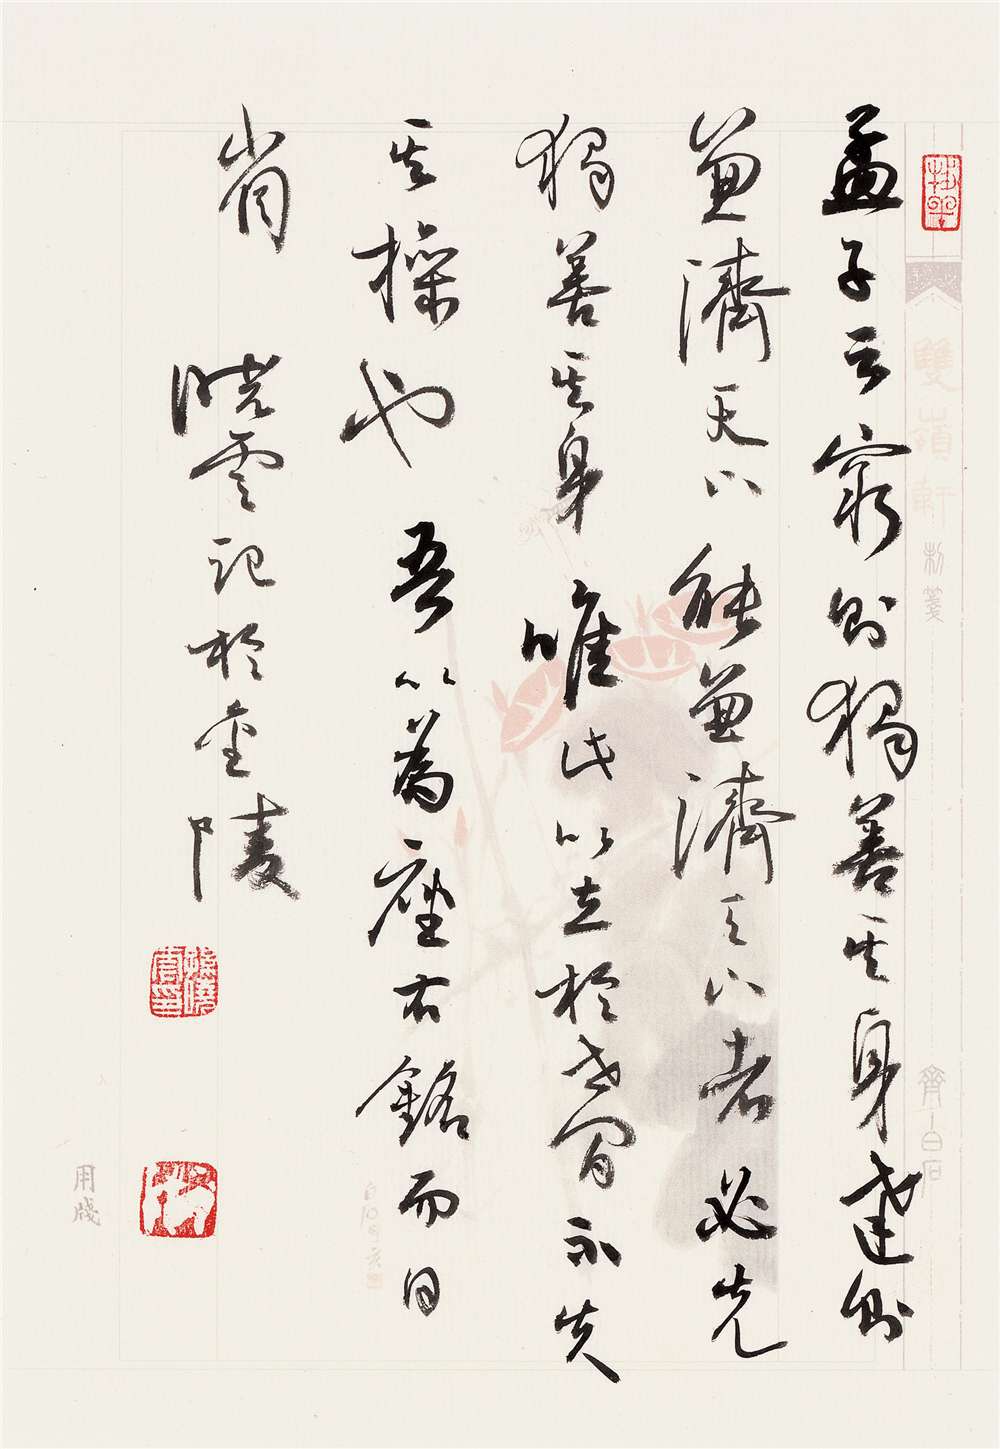 孟子云窮則獨善其身達則
兼濟天下能兼濟天下者必先
獨善其身唯此以立於世間不失
其操也吾以為座右銘而日
省
曉雲記於金陵
雙嶺軒
制箋
齊白石
用牋